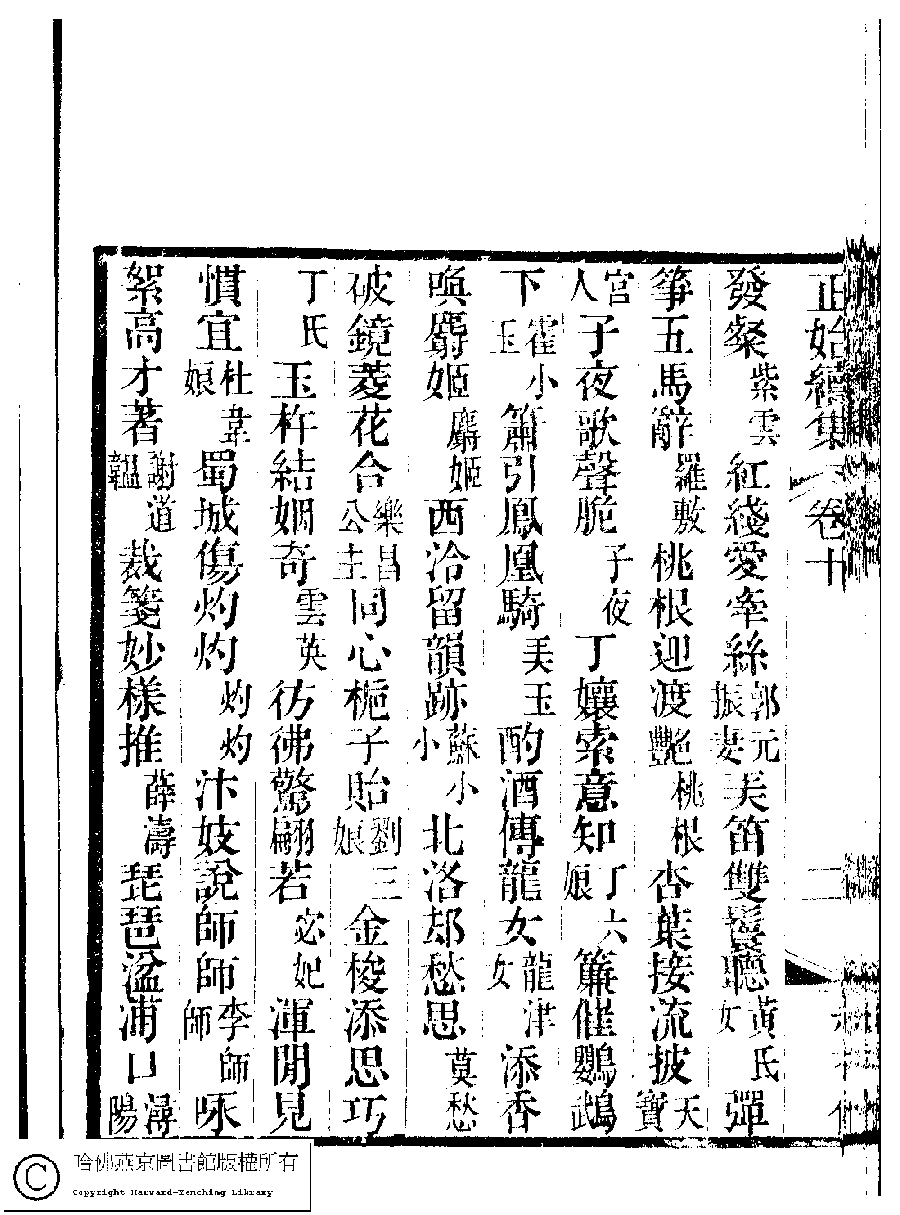 正始續集 卷十
發粲紫雲紅綫愛牽絲郭元振妻美笛雙鬟聽黃氏女彈
箏五馬辭羅敷桃根迎渡艷桃根杏葉接流披天寶
宮人子夜歌聲脆子夜丁孃索意知丁六娘簾催鸚鵡
下霍小玉簫引鳳凰騎美玉酌酒傳龍女龍津女添香
喚麝姬麝姬西泠留韻跡蘇小小北洛刼愁思莫愁
破鏡菱花合樂昌公主同心梔子貽劉三娘金梭添思巧
丁氏玉杵結姻奇雲英彷彿驚翩若宓妃渾閒見
慣宜杜韋娘蜀城傷灼灼灼灼汴妓說師師李師師咏
絮高才著謝道韞裁箋妙樣推薛濤琵琶湓浦口潯陽
哈佛燕京圖書館版權所有
Copyright Harvard-Yenching Library